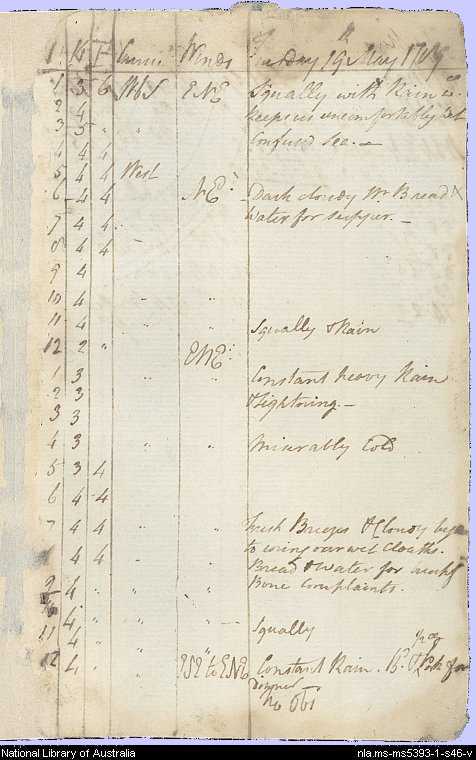 H K F Courses Winds Tuesday 19 May 1789
1 3 6 WbS ENE Squally with Rain wch
2 4 keeps us uncomfortably wet
3 5 " Confused Sea. —
4 4 4
5 4 4 West
6 4 4 NE: Dark cloudy Wr. Bread &
7 4 4 Water for supper. —
8 4 4
9 4
10 4 " "
11 4 Squally & Rain
12 2 "
ENE:
1 3 " " Constant heavy Rain
2 3 & Lightning. —
3 3
4 3 " " Miserably Cold
5 3 4
6 4 4
7 4 4 " " Fresh Breezes & Cloudy
4 4 " to wring our wet cloaths.
9 4 " Bread & Water for
10 4 " " Bone complaints.
11 4 " " Squally
4 "
12 4 " to ENE Constant Rain. Bd. & Pork for
dinner
No Obs
National Library of Australia
nla.ms-ms5393-1-s46-v